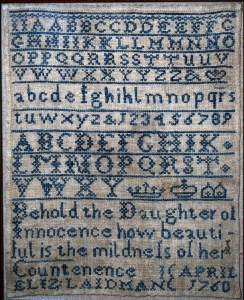 AAABBCCDDEEFFG
GHHIIKKLLMMNNO
OPPQQRRSSTTUUV
VWWXXYYZZ&
abcdefghiklmnopqrs
tuvwxyz&123456789
ABCDEFGHIK
LMNOPQRST
VWXY
Behold the Daughter of
Innocence how beauti-
ful is the mildness of her
Countenence 15 APRIL
ELIZ: LAIDMAN 1760